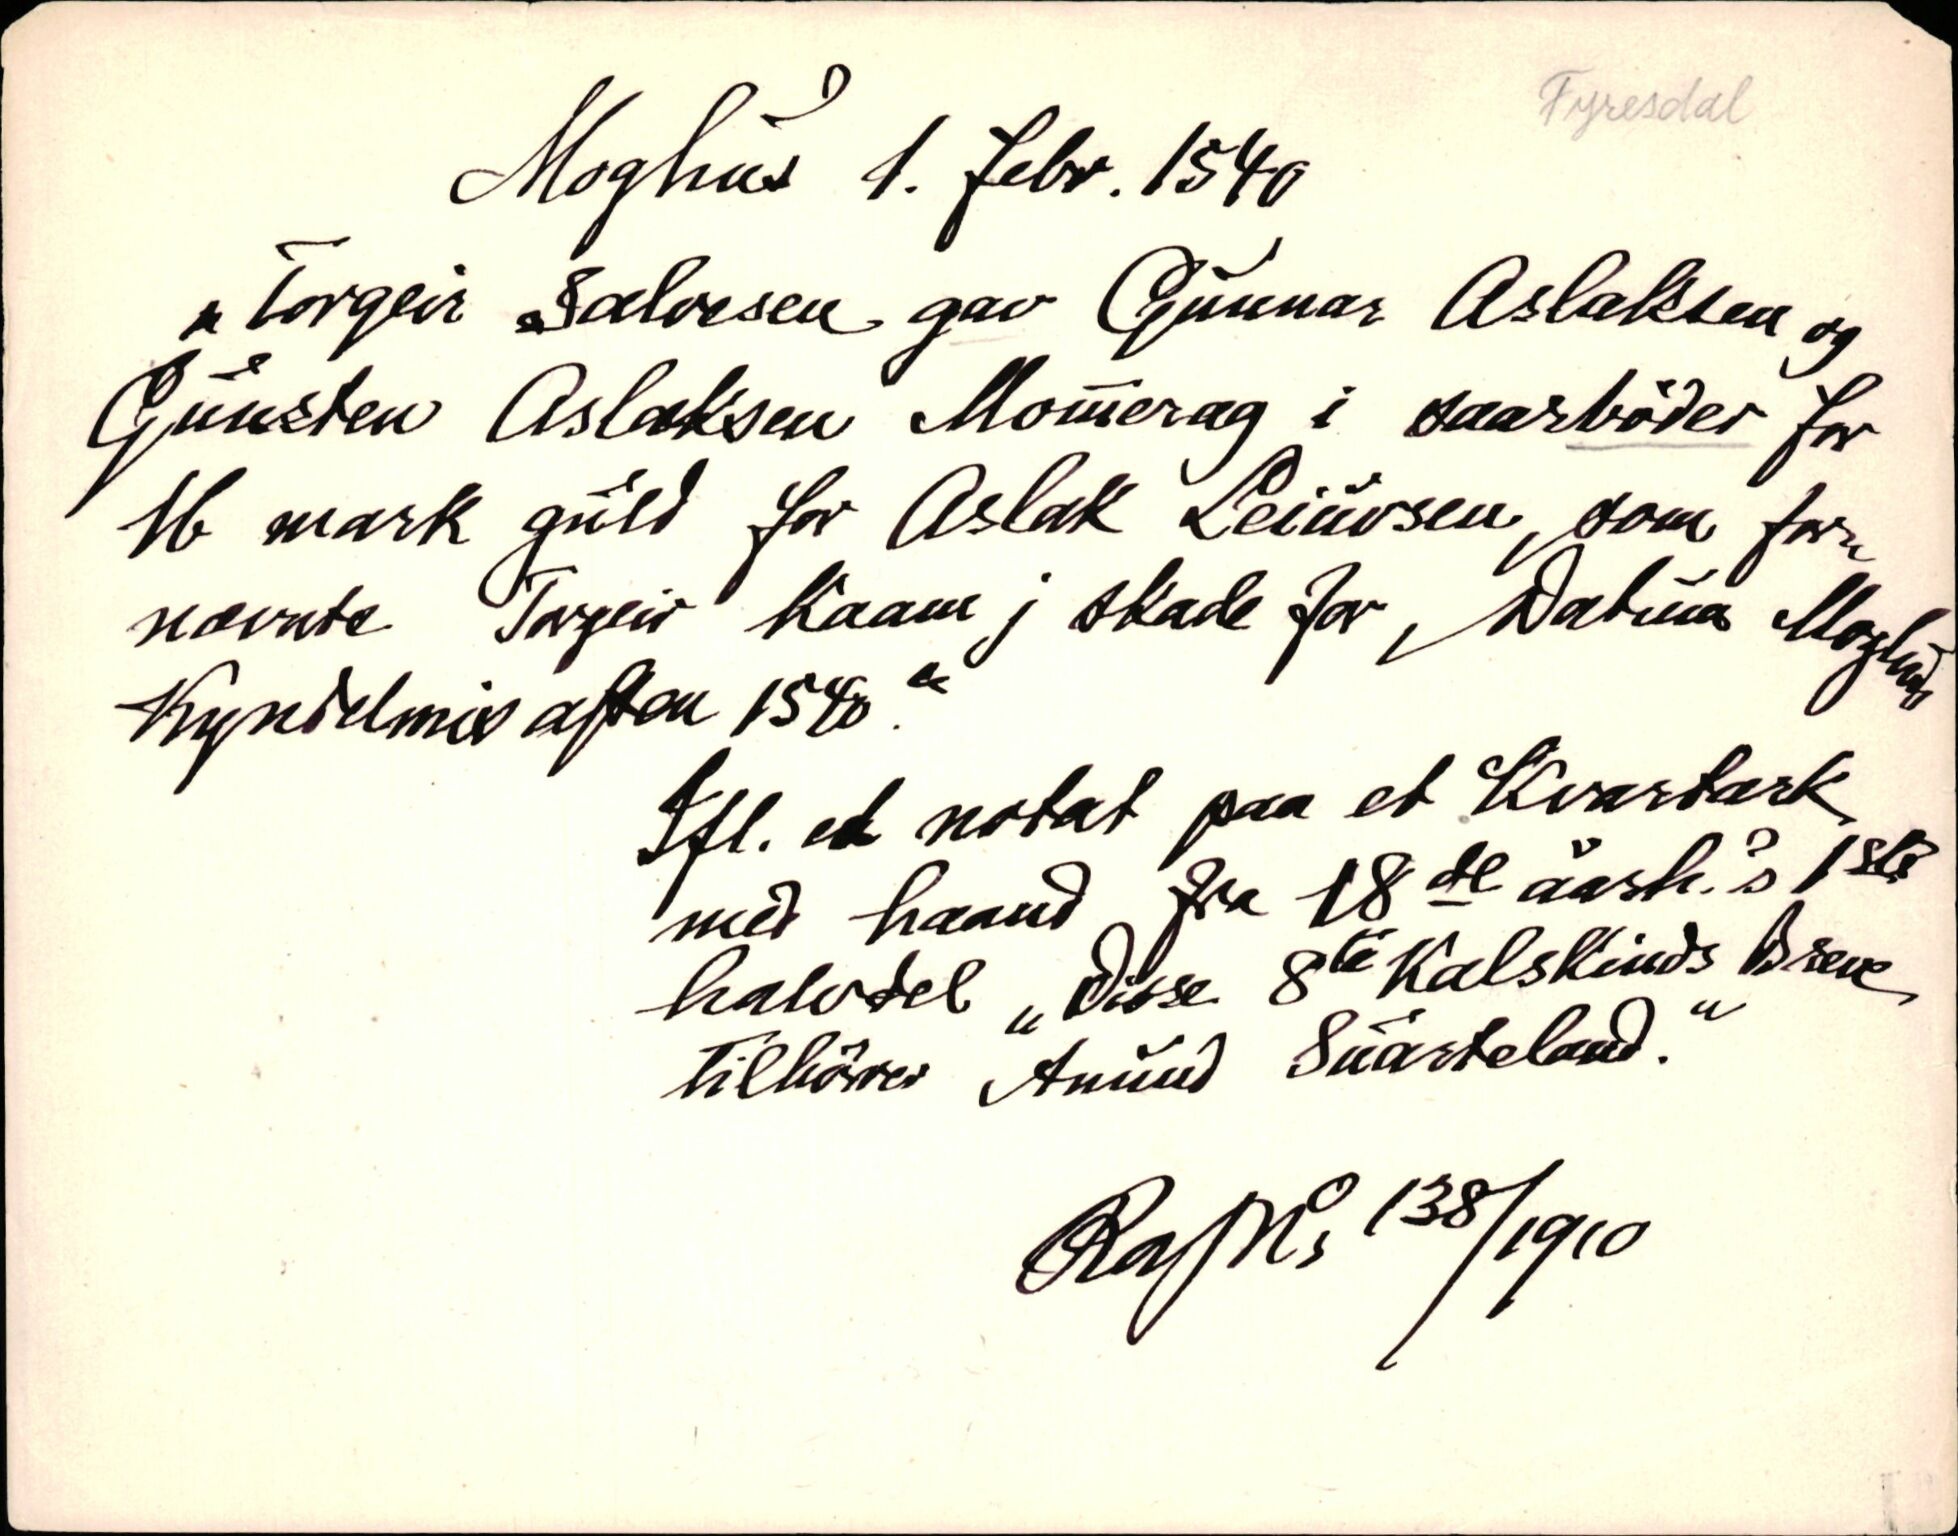 Fyresdal
Moghus 1. febr. 1540
"Torgeir Salvesen gav Gunnar Aslaksen og
Gunsten Aslaksen Momerag i saarböder for
16 mark guld for Aslak Leiuvsen, som for-
nævnte Torgeir kaam j skade for, Datum Moghus
Kyndelmis aften 1540."
Ifl. et notat paa et Kvartark
med haand fra 18de aarh.'s 1ste
halvdel "Disse 8te Kalskinds Breve
tilhörer Anund Suarteland."
138/1910